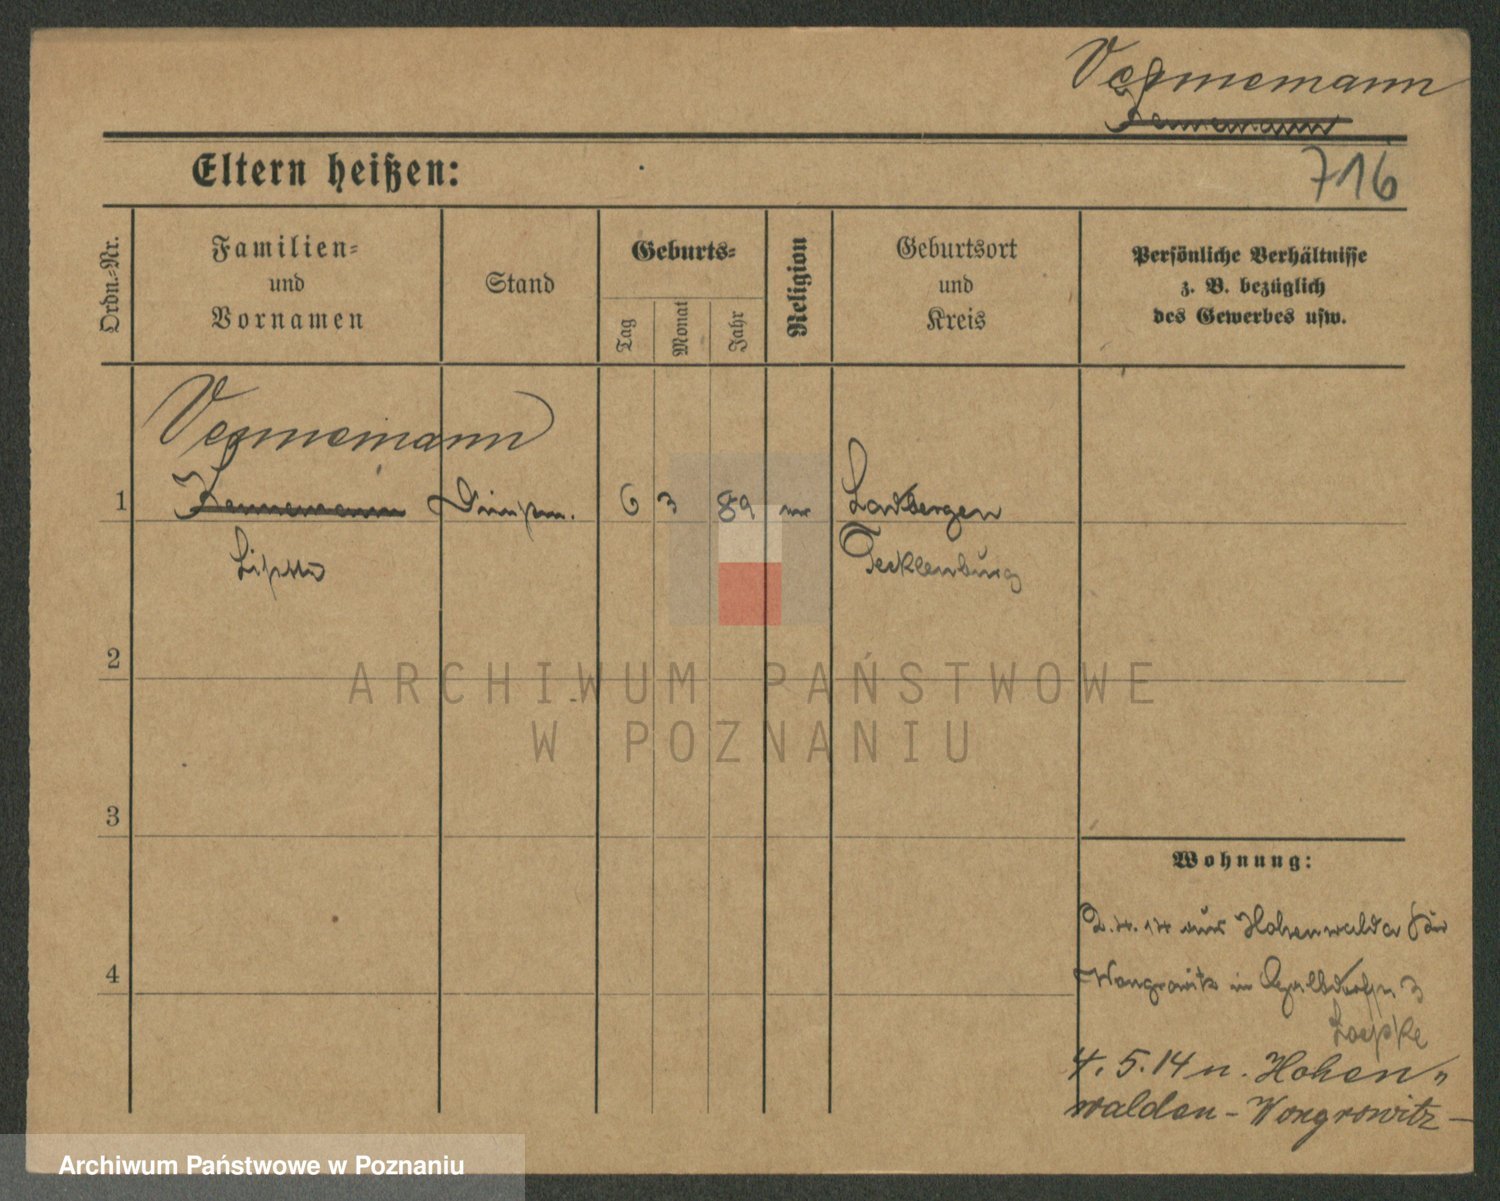 Vennemann
716
Eltern heißen:
Ordn.-Nr.
Familien-
und
Vornamen
Stand
Geburts-
Tag
Monat
Jahr
Religion
Geburtsort
und
Kreis
Persönliche Verhältnisse
z. B. bezüglich
des Gewerbes usw.
Vennemann
1
6 3 89
Ladbergen
Tecklenburg
2
3
4
Wohnung:
2.4.14 aus Hohenwalda
Wongrowitz in 3
4.5.14 n. Hohen„
walden - Wongrowitz -
ARCHIWUM PAŃSTWOWE
W POZNANIU
Archiwum Państwowe w Poznaniu